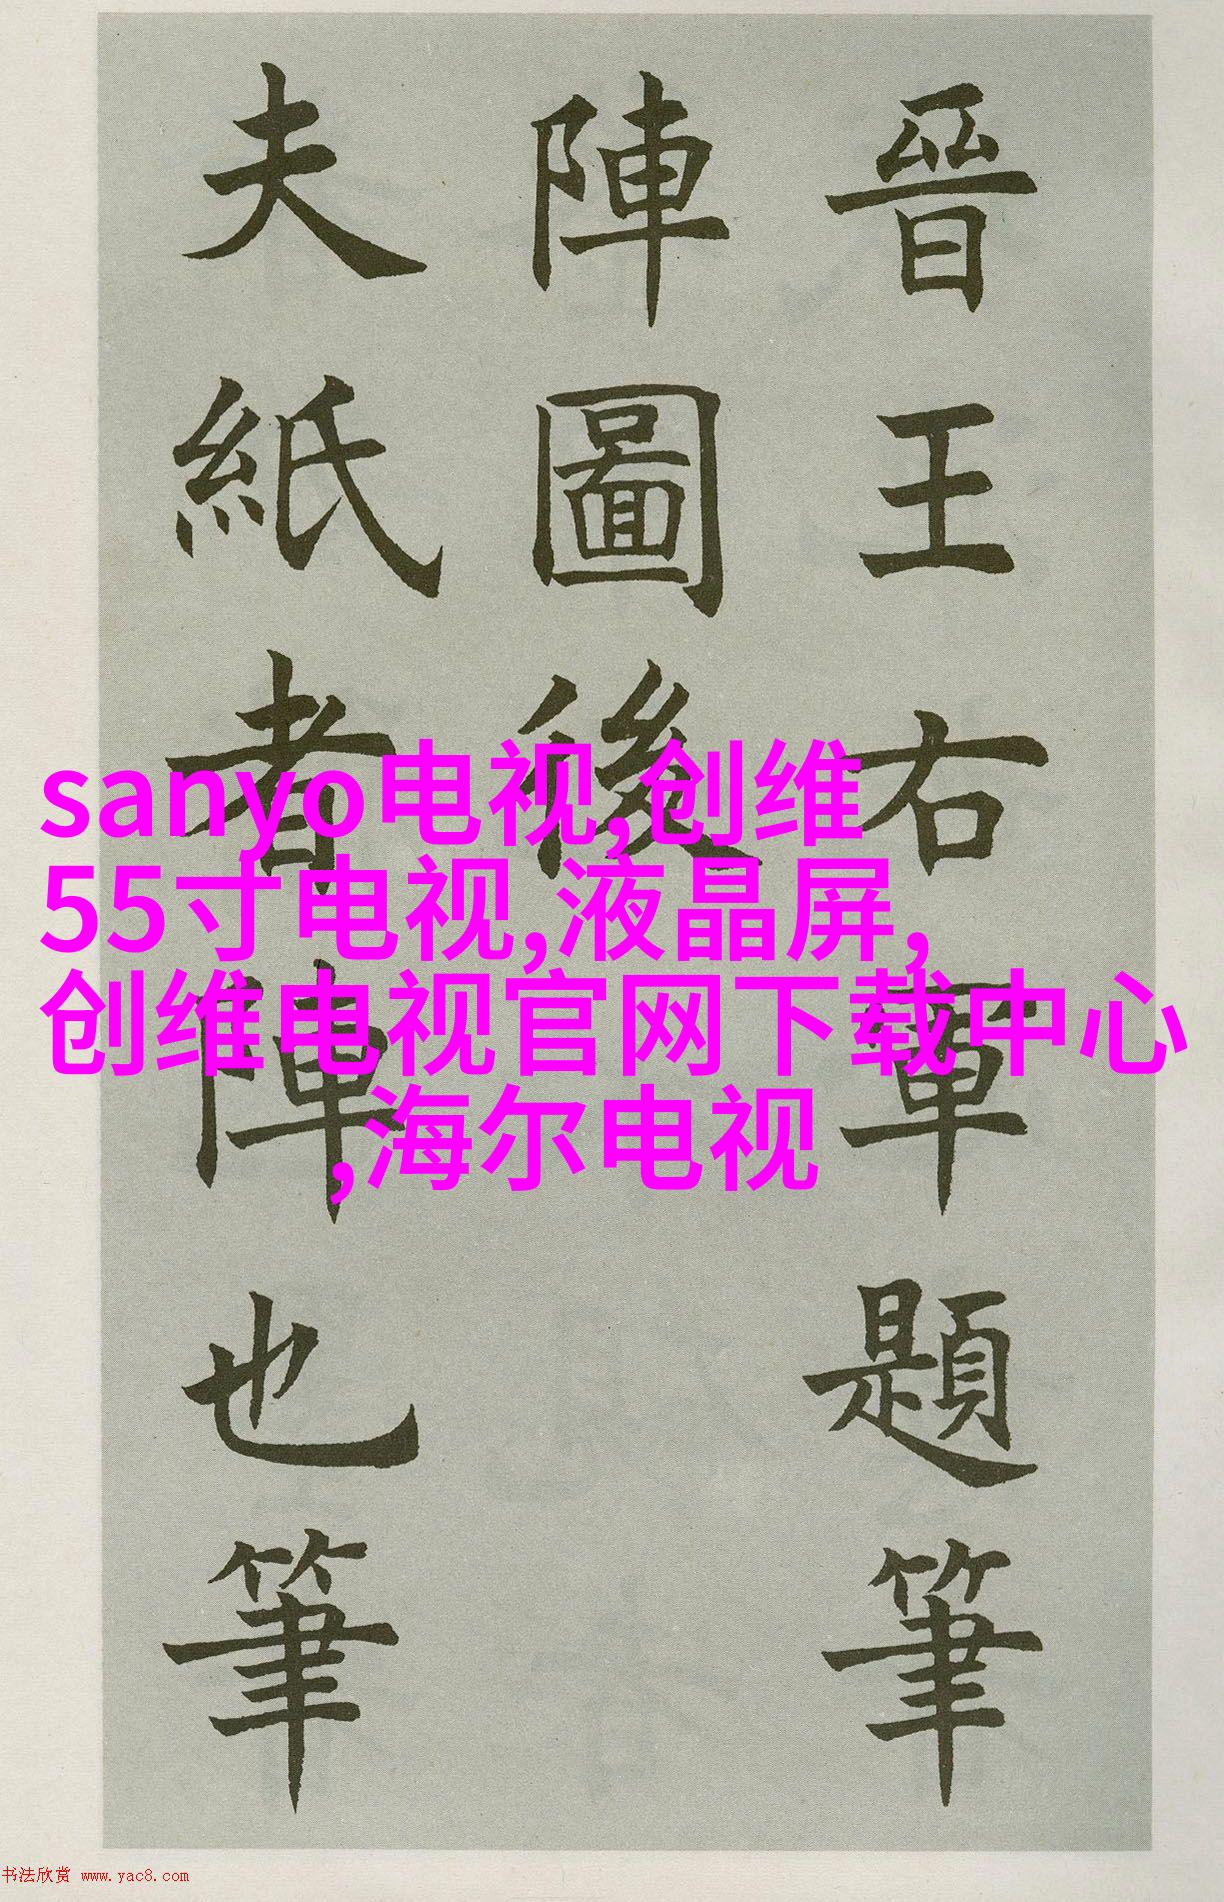 晉王右軍題筆
陣圖後
夫紙者陣也筆
sanyo电视,创维
55寸电视,液晶屏,
创维电视官网下载中心
,海尔电视
书法欣赏 www.yac8.com